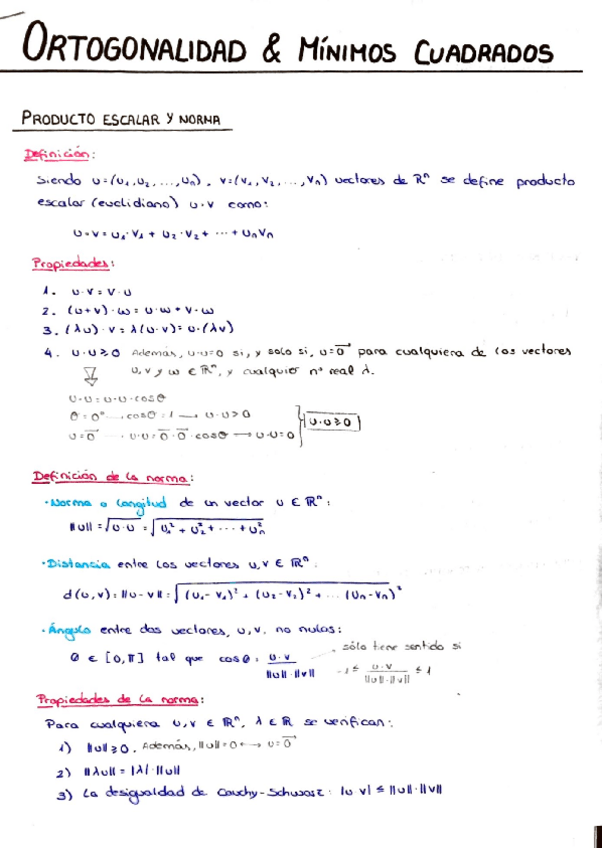 ORTOGONALIDAD & MÍNIMOS CUADRADOS
PRODUCTO ESCALAR Y NORMA
Definición:
Siendo u=(u₁,u₂,...,uₙ), v=(v₁,v₂,...,vₙ) vectores de ℝⁿ se define producto
escalar (euclidiano) u·v como:
u·v = u₁·v₁ + u₂·v₂ + ... + uₙvₙ
Propiedades:
1. u·v = v·u
2. (u+v)·ω = u·ω + v·ω
3. (λu)·v = λ(u·v) = u·(λv)
4. u·u ≥ 0 Además, u·u=0 si, y solo si, u=0⃗ para cualquiera de los vectores
u, v y ω ∈ ℝⁿ, y cualquier nº real λ.
u·u = u·u·cosθ
θ=0° ... cosθ=1 → u·u>0
u=0⃗ ... u·u=0⃗·0⃗·cosθ → u·u=0
u·u≥0
Definición de la norma:
·Norma o longitud de un vector u ∈ ℝⁿ:
||u|| = √u·u = √u₁² + u₂² + ... + uₙ²
·Distancia entre los vectores u,v ∈ ℝⁿ:
d(u,v) = ||u-v|| = √(u₁-v₁)² + (u₂-v₂)² + ... (uₙ-vₙ)²
·Ángulo entre dos vectores, u,v, no nulos:
θ ∈ [0,π] tal que cosθ = u·v / ||u||·||v||
sólo tiene sentido si
-1 ≤ u·v / ||u||·||v|| ≤ 1
Propiedades de la norma:
Para cualquiera u,v ∈ ℝⁿ, λ ∈ ℝ se verifican:
1) ||u|| ≥ 0. Además, ||u||=0 ↔ u=0⃗
2) ||λu|| = |λ|·||u||
3) La desigualdad de Cauchy-Schwarz: |u v| ≤ ||u||·||v||